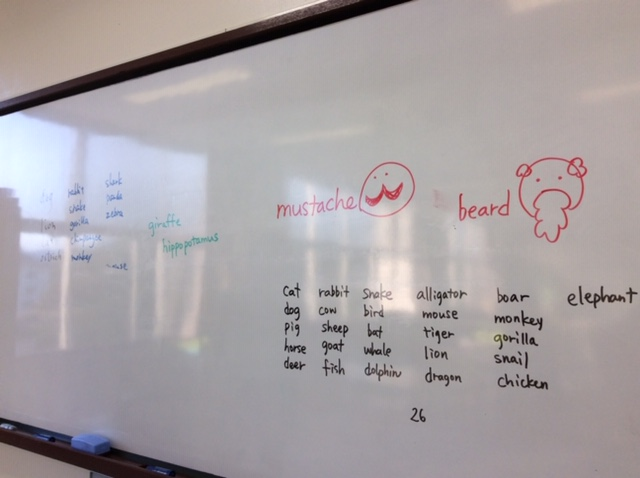 rabbit shark
dog snake panda
lion gorilla zebra
giraffe
hippopotamus
mouse
mustache beard
cat rabbit snake alligator boar elephant
dog cow bird mouse monkey
pig sheep bat tiger gorilla
horse goat whale lion snail
deer fish dolphin dragon chicken
26